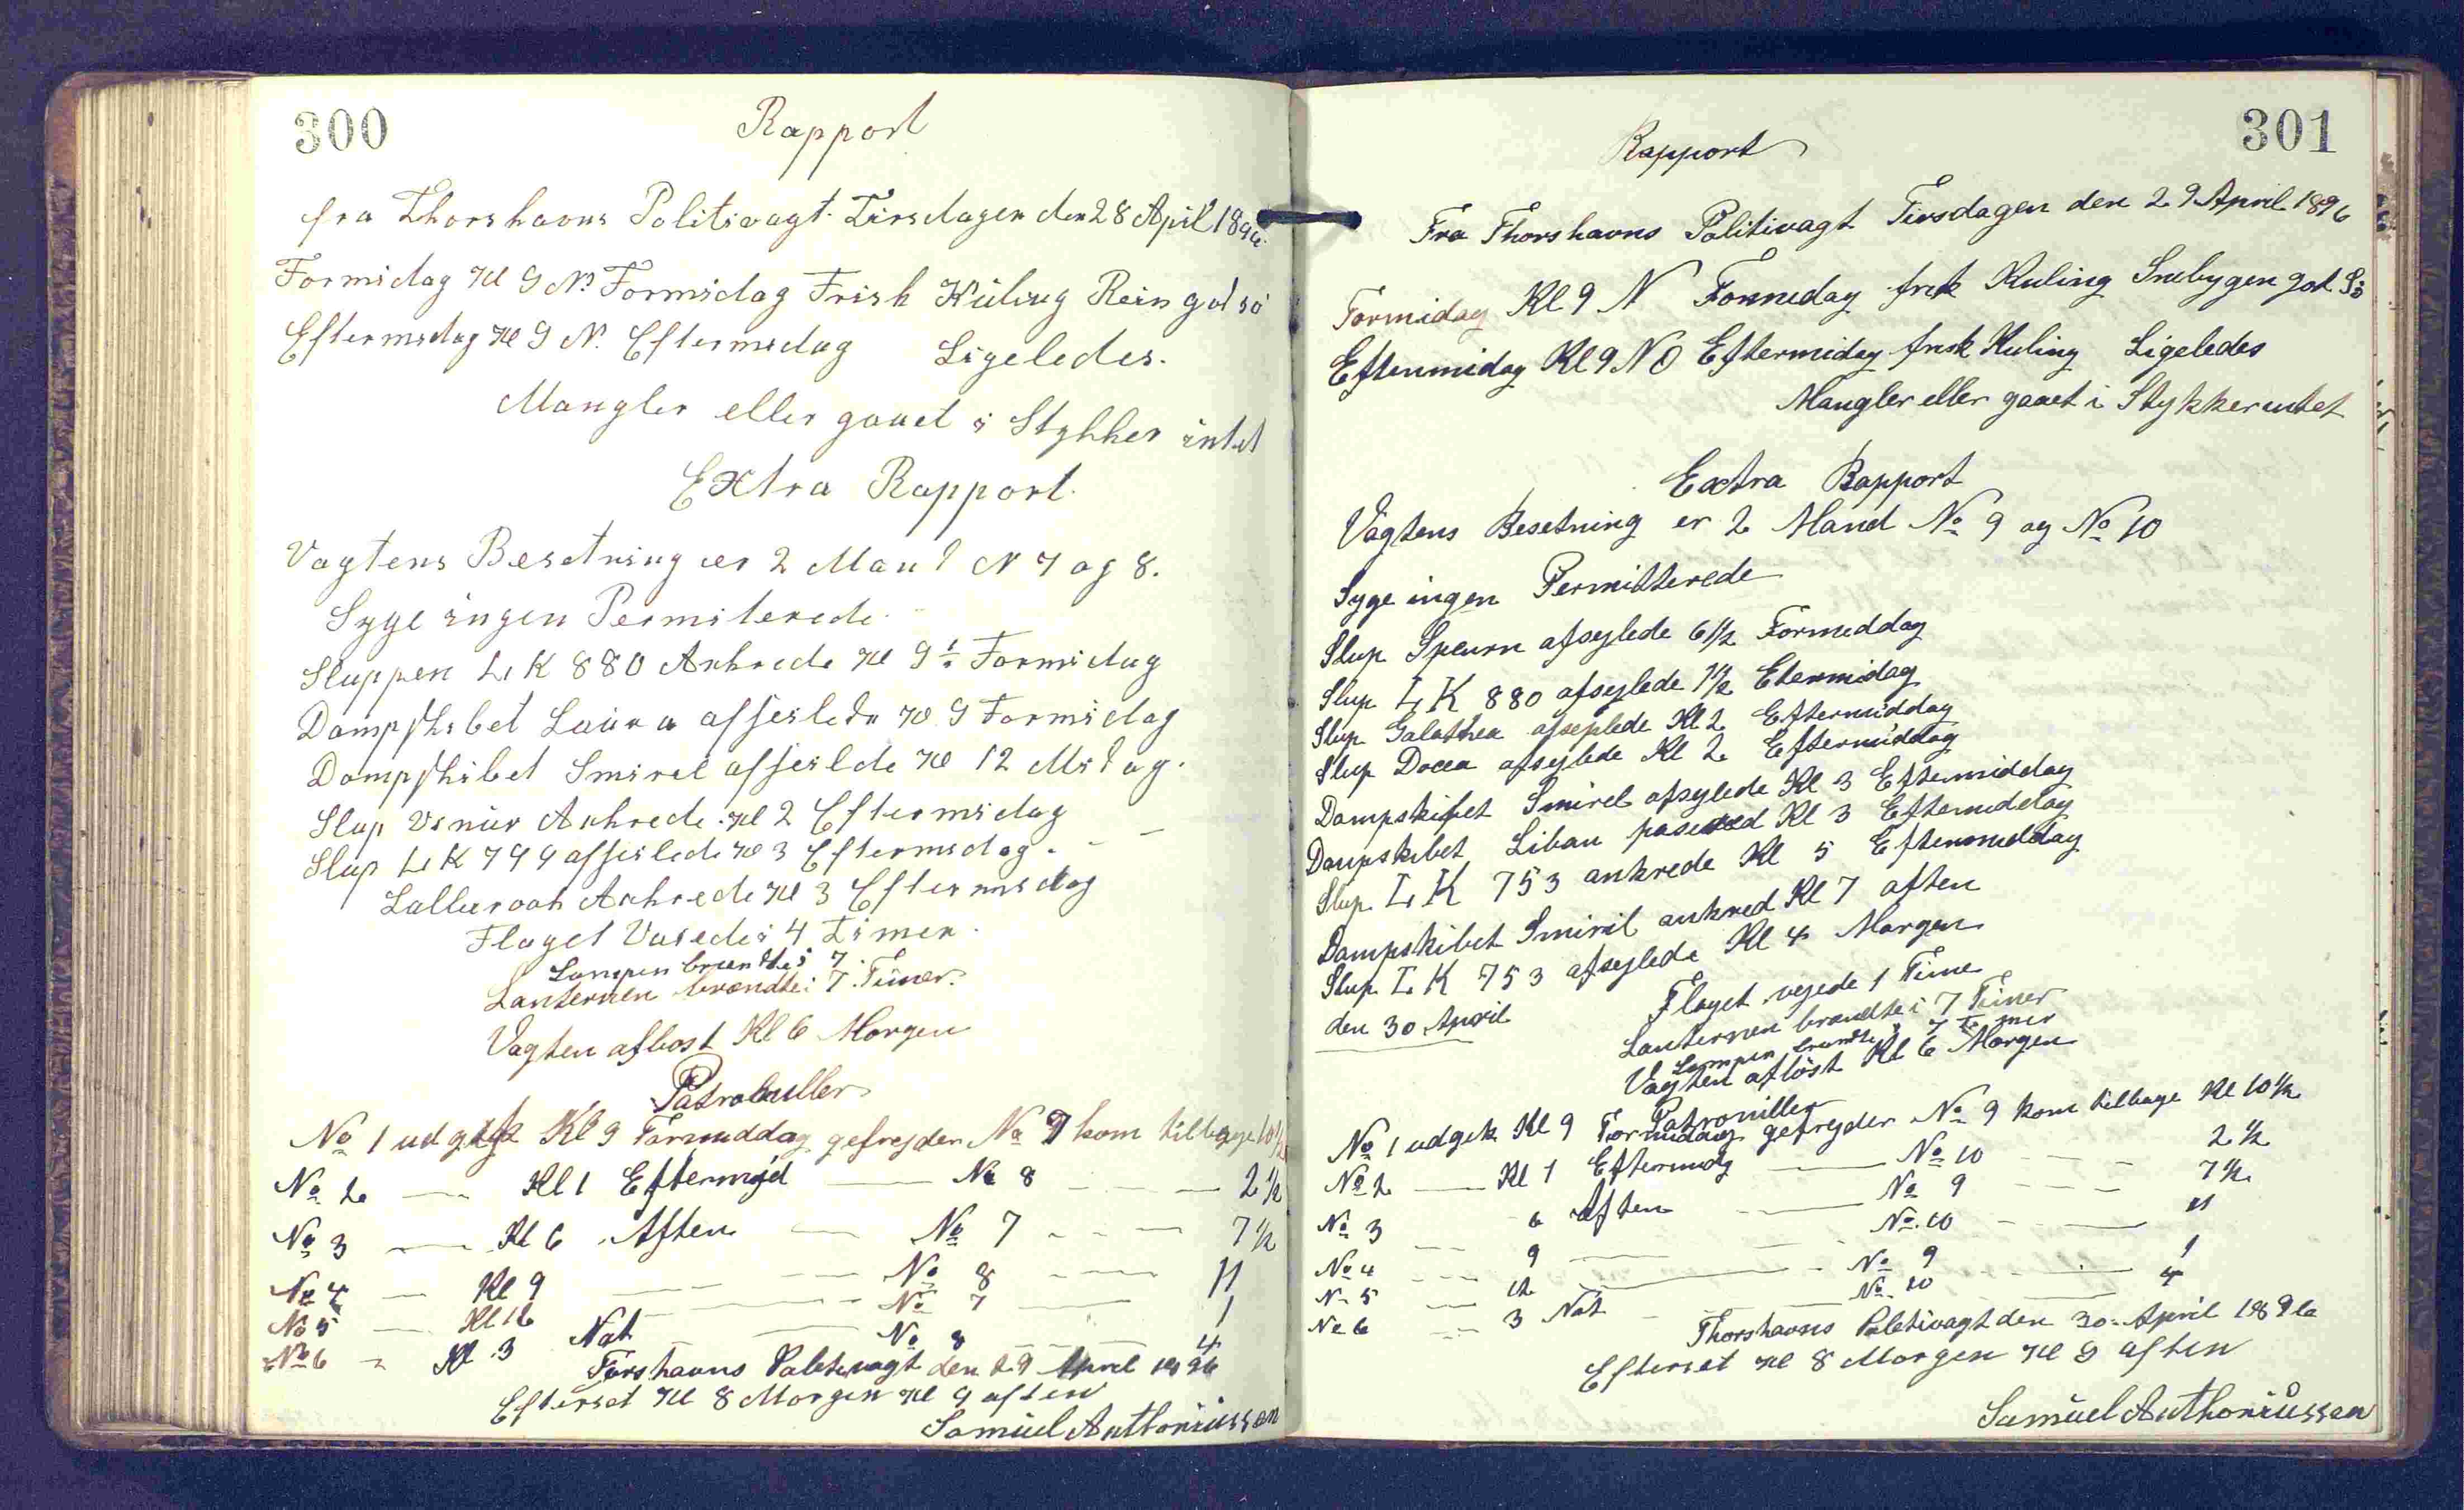 300
Rapport
fra Thorshavns Politivagt. Tirsdagen den 28 April 1896.
Formidag Kl 9 N. Formidag Frish Küling Rein god sö
Eftermidag Kl 9 N. Eftermidag Ligeledes.
Mangler eller gaaet i Stykker intet
Extra Rapport.
Vagtens Besetning er 2 Mand N 7 og 8.
Syge ingen Permiterede
Sluppen L K 880 Ankrede Kl 9½ Formidag
Dampskibet Laura affeilede Kl 9 Formidag
Dampskibet Smirel affeilde Kl 12 Midag.
Slup Ankrede Kl 2 Eftermidag
Slup L K 799 affeilede Kl 3 Eftermidag.
Ankrede Kl 3 Eftermidag
Flaget Vaiede i 4 Timer.
Lampen brendte i 7
Lanternen brændte i 7 Timer.
Vagten aflöst Kl 6 Morgen
Patrouller
No 1 udgik Kl 9 Formiddag gefrejder No 7 kom tilbage 10½
No 2 — Kl 1 Eftermid — No 8 — — — 2½
No 3 — Kl 6 Aften — No 7 - - — 7½
No 4 — Kl 9 — — No 8 - — 11
No 5 — Kl 12 — — No 7 — 1
No 6 - Kl 3 Nat — No 8 — — 4
Torshavns Politivagt den 29 April 1896
Efterset Kl 8 Morgen Kl 9 aften
Samuel Anthoniussen
301
Rapport
Fra Thorshavns Politivagt Tirsdagen den 29 April 1896
Formidag Kl 9 N Formedag frsk Kuling Snebygen god Sö
Eftermidag Kl 9 NO Eftermidag frsk Kuling Ligeledes
Mangler eller gaaet i Stykker intet
Extra Rapport
Vagtens Besetning er 2 Mand No 9 og No 10
Syge ingen Permitterede
Slup Spcurn afsejlede 6½ Formeddag
Slup L K 880 afsejlede 1½ Etermidag
Slup Galathea afsejlede Kl 2 Eftermiddag
Slup Docea afsejlede Kl 2 Eftermiddag
Dampskibet Smirel afsejlede Kl 3 Eftemiddag
Dampskibet Liban Kl 3 Eftemiddag
Slup L K 753 ankrede Kl 5 Eftermeddag
Dampskibet Smiril ankred Kl 7 aften
Slup L K 753 afsejlede Kl 4 Morgen
den 30 April
Flaget vejede 1 Time
Lanternen brændte i 7 Timer
Lampen brendte i 7 Timer
Vagten aflöst Kl 6 Morgen
Patrouiller
No 1 udgik Kl 9 Formidag gefrejder No 9 kom tilbage Kl 10½
No 2 — Kl 1 Eftermidg — No 10 - - - 2½
No 3 6 Aften — No 9 - - - 7½
No 4 — 9 — No 10 - — 11
No 5 — 12 — No 9 — 1
No 6 — 3 Nat — No 10 - — 4
Thorshavns Politivagt den 30 April 1896
Efterset Kl 8 Morgen Kl 9 aften
Samuel Anthoniussen